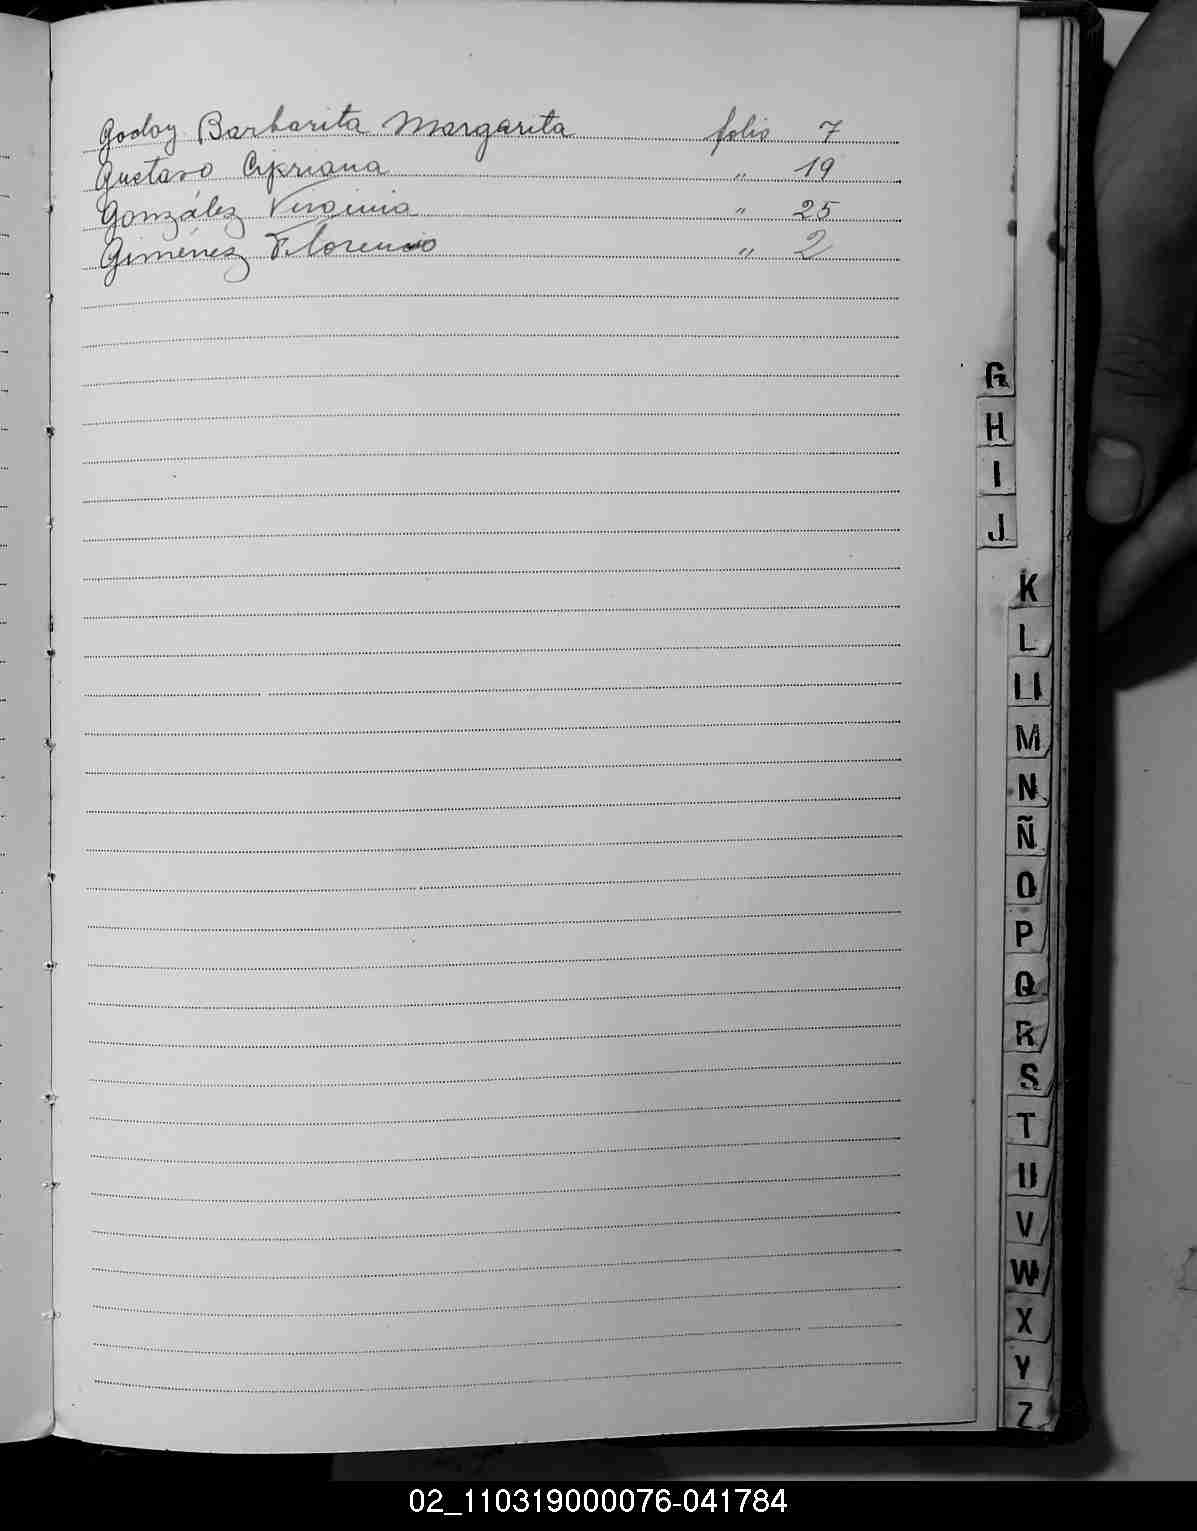 Godoy Barbarita Margarita folio 7
Gustavo Cipriana " 19
González Virginia " 25
Giménez Florencio " 2
G
H
I
J
K
L
Ll
M
N
Ñ
O
P
Q
R
S
T
U
V
W
X
Y
Z
02_110319000076-041784